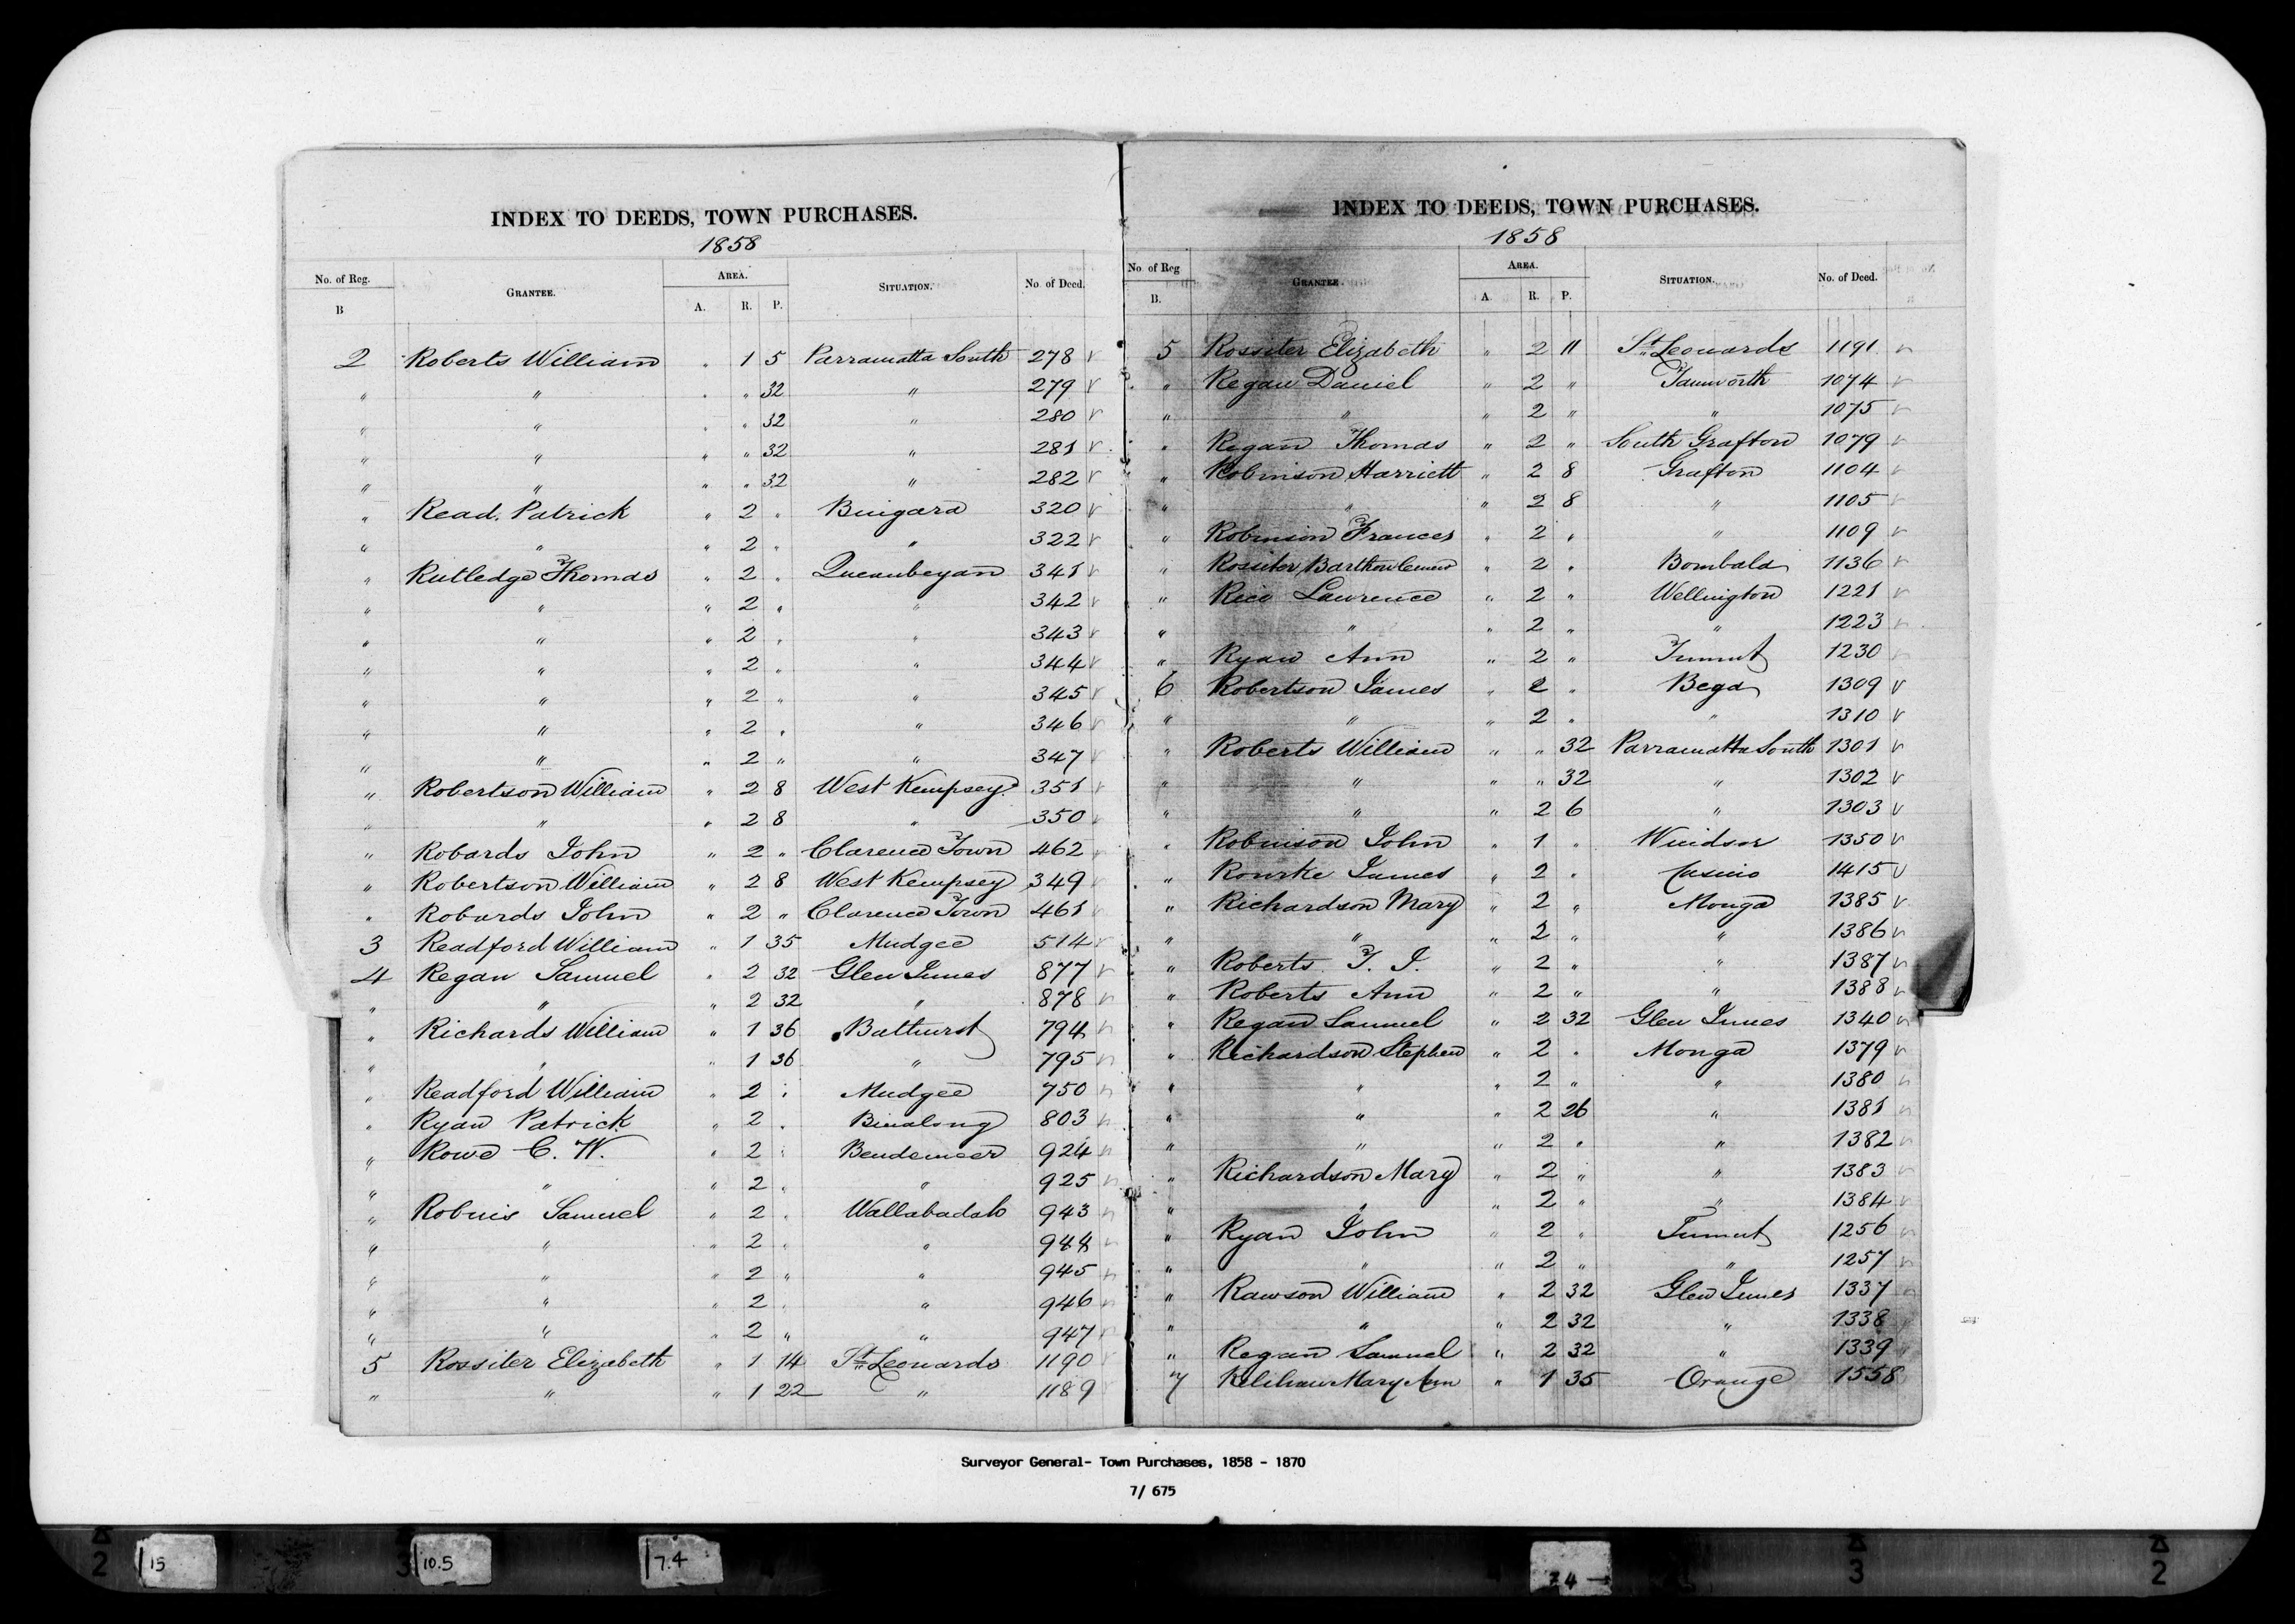 INDEX TO DEEDS, TOWN PURCHASES.
1858
No. of Reg. B GRANTEE. AREA. A. R. P. SITUATION. No. of Deed.
2 Roberts William " 1 5 Parramatta South 278
" " " " 32 " 279
" " " " 32 " 280
" " " " 32 " 281
" " " " 32 " 282
" Read. Patrick " 2 " Bingara 320
" " " 2 " " 322
" Rutledge Thomas " 2 " Queanbeyan 341
" " " 2 " " 342
" " " 2 " " 343
" " " 2 " " 344
" " " 2 " " 345
" " " 2 " " 346
" " " 2 " " 347
" Robertson William " 2 8 West Kempsey 351
" " " 2 8 " 350
" Robards John " 2 " Clarence Town 462
" Robertson William " 2 8 West Kempsey 349
" Robards John " 2 " Clarence Town 461
3 Readford William " 1 35 Mudgee 514
4 Regan Samuel " 2 32 Glen Innes 877
" " " 2 32 " 878
" Richards William " 1 36 Bathurst 794
" " " 1 36 " 795
" Readford William " 2 " Mudgee 750
" Ryan Patrick " 2 " Binalong 803
" Rowe C. W. " 2 " Bendemeer 924
" " " 2 " " 925
" Samuel " 2 " Wallabadah 943
" " " 2 " " 944
" " " 2 " " 945
" " " 2 " " 946
" " " 2 " " 947
5 Rossiter Elizabeth " 1 14 St Leonards 1190
" " " 1 22 " 1189
INDEX TO DEEDS, TOWN PURCHASES.
1858
No of Reg B. GRANTEE. AREA. A. R. P. SITUATION. No. of Deed.
5 Rossiter Elizabeth " 2 11 St Leonards 1191
" Regan Daniel " 2 " Tamworth 1074
" " " 2 " " 1075
" Regan Thomas " 2 " South Grafton 1079
" Robinson Harriett " 2 8 Grafton 1104
" " " 2 8 " 1105
" Robinson Frances " 2 " " 1109
" Rossiter " 2 " Bombala 1136
" Rice Lawrence " 2 " Wellington 1221
" " " 2 " " 1223
" Ryan Ann " 2 " Tumut 1230
6 Robertson James " 2 " Bega 1309
" " " 2 " " 1310
" Roberts William " " 32 Parramatta South 1301
" " " " 32 " 1302
" " " 2 6 " 1303
" Robinson John " 1 " Windsor 1350
" Rourke James " 2 " Casino 1415
" Richardson Mary " 2 " Monga 1385
" " " 2 " " 1386
" Roberts T. J. " 2 " " 1387
" Roberts Ann " 2 " " 1388
" Regan Samuel " 2 32 Glen Innes 1340
" Richardson Stephen " 2 " Monga 1379
" " " 2 " " 1380
" " " 2 26 " 1381
" " " 2 " " 1382
" Richardson Mary " 2 " " 1383
" " " 2 " " 1384
" Ryan John " 2 " Tumut 1256
" " " 2 " " 1257
" Rawson William " 2 32 Glen Innes 1337
" " " 2 32 " 1338
" Regan Samuel " 2 32 " 1339
7 Mary Ann " 1 35 Orange 1558
Surveyor General- Town Purchases, 1858 - 1870
7/ 675
2
15
3
10.5
7.4
24
3
2